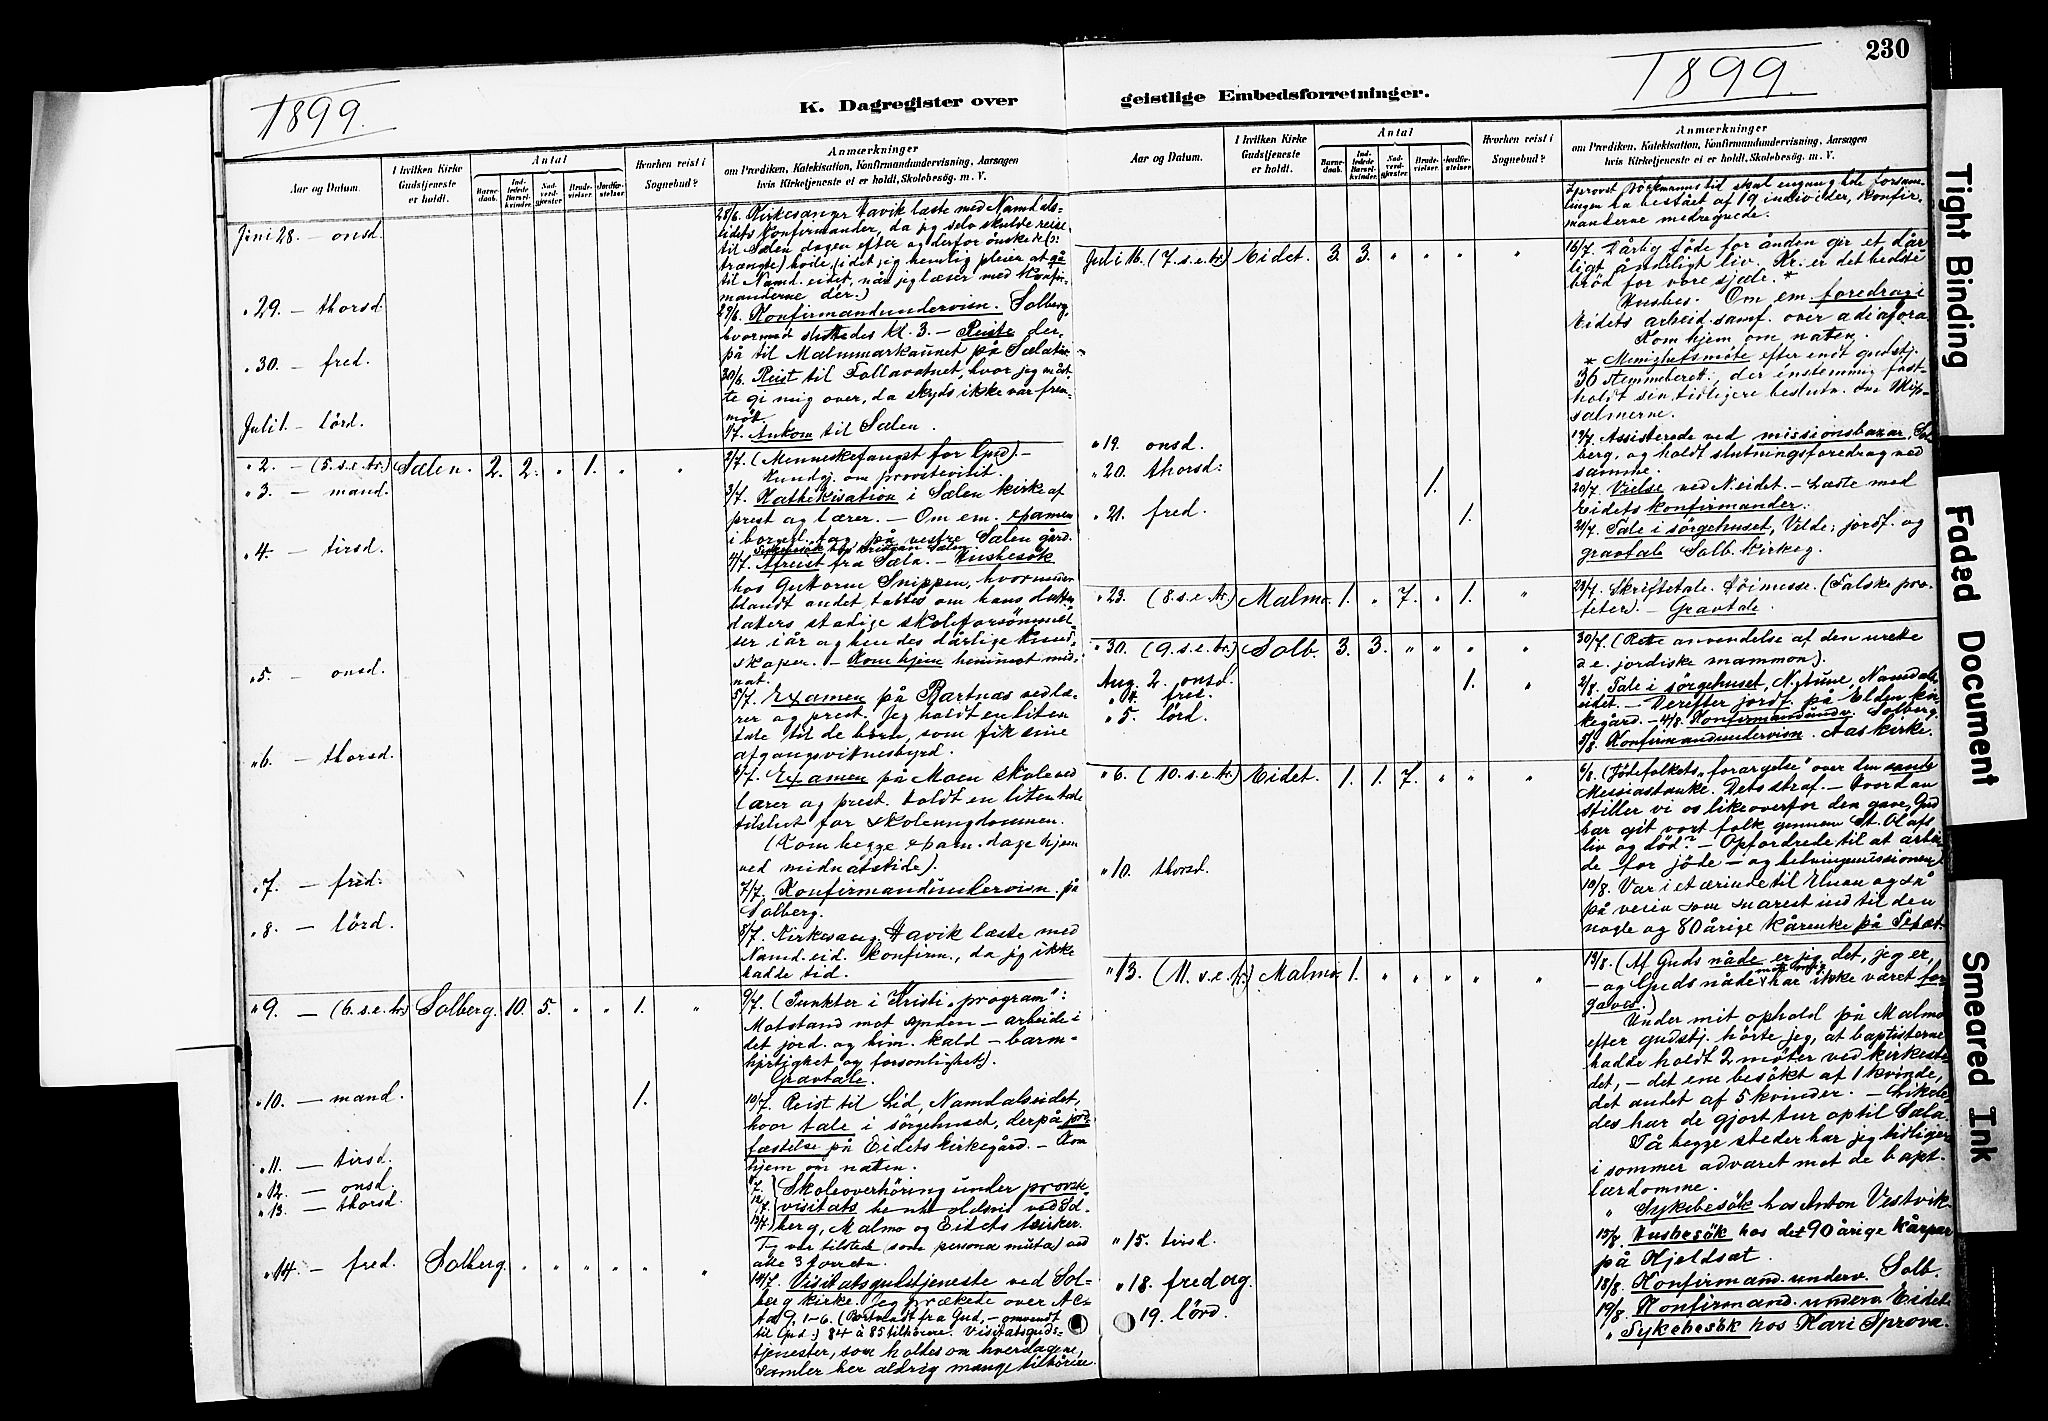 230
1899.
1899.
K. Dagregister over
geistlige Embedsforretninger.
Aar og Datum.
I hvilken Kirke Gudstjeneste er holdt.
Antal
Barnedaab.
Indledede Barselkvinder.
Nadverdgjester.
Brudevielser.
Jordfæstelser.
Hvorhen reist i Sognebud?
Anmærkninger
om Prædiken, Katekisation, Konfirmandundervisning, Aarsagen
hvis Kirketjeneste ei er holdt, Skolebesøg. m. V.
Juni 28. — onsd.
28/6. Kirkesanger Havik læste med Namdals-
eidets Konfirmander, da jeg selv skulde reise
til Sælen dagen efter og derfor ønskede (ɔ:
trængte) hvile, (idet jeg nemlig pleier at gå
til Namd. eidet, når jeg læser med Konfir-
manderne der.)
" 29. — thorsd.
29/6. Konfirmandundervisn. Solberg,
hvormed sluttedes kl. 3. — Reiste der-
på til Malmmarkaunet på Sælatun
" 30. — fred.
30/6. Reist til Follavatnet, hvor jeg måt-
te gi mig over, da skyds ikke var frem-
møt.
Juli 1. — lörd.
1/7. Ankom til Sælen.
" 2. — (5. s. e. tr.) Sælen. 2. 2. " 1. " "
2/7. (Menneskefangst for Gud). —
Kundgj. om provstevisit.
" 3. — mand.
3/7. Kathekisation i Sælen kirke af
prest og lærer. — Om em. examen
på vestre Sælen gård.
" 4. — tirsd.
Sykebesök hos Kristian Sælen
4/7. Afreist fra Sæln. — Husbesök
hos Guttorm Snippen, hvor
blandt andet taltes om hans datter-
daters stadige skoleforsömmel-
ser i år og hendes dårlige kund-
skaper. — Kom hjem henimot mid-
nat.
" 5. — onsd.
5/7. Examen på Bartnæs ved læ-
rer og prest. Jeg holdt en liten
tale til de børn, som fik sine
afgangsvitnesbyrd.
" 6. — thorsd.
6/7. Examen på Moen skole ved
lærer og prest. Holdt en liten tale
tilslut for skoleungdommen.
(Kom begge exam. dage hjem
ved midnatstide).
" 7. — fred.
7/7. Konfirmandundervisn. på
Solberg.
" 8. — lörd.
8/7. Kirkesang. Havik læste med
Namd. eid. konfirm., da jeg ikke
hadde tid.
" 9. — (6. s. e. tr.) Solberg. 10. 5. " " 1. "
9/7. (Punkter i Kristi "program":
Motstand mot synden — arbeide i
det jord. og him. kald — barm-
hjrtighet og forsonlighet).
Gravtale.
" 10. — mand. 1.
10/7. Reist til Lid, Namdalseidet,
hvor tale i sørgehuset, derpå jord-
fæstelse på Eidets kirkegård. — Kom
hjem om natten.
" 11. — tirsd.
" 12. — onsd.
" 13. — thorsd.
Skoleoverhöring under provste
visitats holdtes ved Sol-
berg, Malmo og Eidets kirker.
Jeg var tilstede (som persona muta) ved
alle 3 forretn.
" 14. — fred. Solberg. " " " " " "
14/7. Visitatsgudstjeneste ved Sol-
berg kirke. Jeg prækede over Ac-
ta 9, 1–6. (Bortvendt fra Gud, — omvendt
til Gud.) 84 à 85 tilhörere. Visitatsguds-
tjenester, som holdes om hverdagene,
samler her aldrig mange tilhörere.
skal engang hele forsam-
lingen ha bestået af 19 individer, konfir-
manterne medregnede.
Juli 16. (7. s. e. tr.) Eidet. 3. 3. " " " "
16/7. Dårlig føde for ånden gir et dår-
ligt åndeligt liv. Kr. er det bedste
bröd for vore sjæle. *
Husbes. Om em. foredrag i
Eidets arbeid. samf. over adiafora.
Kom hjem om natten.
* Menighetsmöte efter endt gudstj.
36 stemmeberett., der enstemmig fast-
holdt sin tidligere beslutn. om
salmerne.
" 19. onsd.
19/7. Assisterede ved missionsbazar, Sol-
berg, og holdt slutningsforedrag ved
samme.
" 20. thorsd. 1.
20/7. Vielse ved N. eidet. — Læste med
Eidets konfirmander.
" 21. fred. 1.
21/7. Tale i sörgehuset, Velde; jordf. og
gravtale Solb. kirkeg.
" 23. (8. s. e. tr.) Malmo. 1. " 7. " 1. "
23/7. Skriftetale. Höimesse. (Falske pro-
feter). — Gravtale.
" 30. (9. s. e. tr.) Solb. 3. 3. " " " "
30/7. (Rette anvendelse af den urette
ɔ: e. jordiske mammon).
Aug. 2. onsd. 1. "
2/8. Tale i sörgehuset, Nybune, Namdals-
eidet. — Derefter jordf. på Elden kir-
" 4. fred.
kegård. — 4/8. Konfirmandundv. Solberg.
" 5. lörd.
5/8. Konfirmandundervisn. Aas kirke.
" 6. (10. s. e. tr.) Eidet. 1. 1. 7. " " "
6/8. (Jödefolkets "forargelse" over den sande
Messiastanke. Dets straf. — Hvordan
stiller vi os likeoverfor den gave, Gud
har git vort folk gennem St. Olafs
liv og död? — Opfordrede til at arbei-
de for jöde- og hedningemissionen)
" 10. thorsd.
10/8. Var i et ærinde til Elnan og så
på veien som snarest ind til den
vagle og 80 årige kårenke på
" 13. (11. s. e. tr.) Malmo. 1. " " " " "
13/8. (Af Guds nåde er jeg det, jeg er,
— og Guds nåde mot mig har ikke været for-
gæves.)
Under mit ophold på Malmo
efter gudstj. hörte jeg, at baptisterne
hadde holdt 2 möter ved kirkeste-
det, — det ene besökt af 1 kvinde,
det andet af 5 kvinder. — Likele-
des har de gjort tur op til Sæla.
På begge steder har jeg tidligere
i sommer advaret mot de bapt.
lærdomme.
" Sykebesök hos Anton Vestvik.
" 15. tirsd.
15/8. Husbesök hos det 90 årige kårpar
på Kjeldsæt.
" 18. fredag
18/8. Konfirmand. underv. Solb.
" 19. lörd.
19/8. Konfirmand. underv. Eidet.
" Sykebesök hos Kari Sprova.
Tight Binding
Faded Document
Smeared Ink